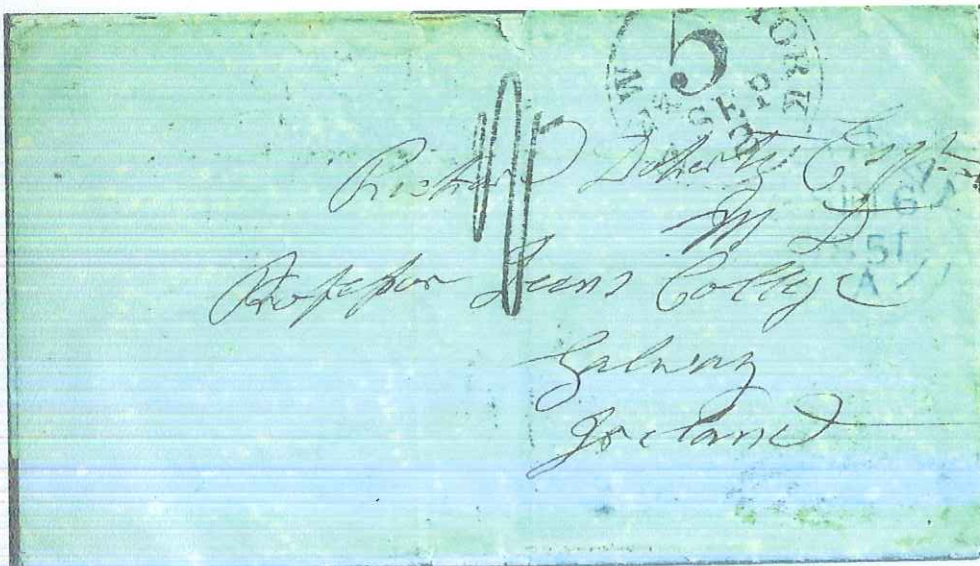 5
W YORK
Richard Doherty Esqr
M D
Professor Queens College
Galway
Ireland
6
51
A